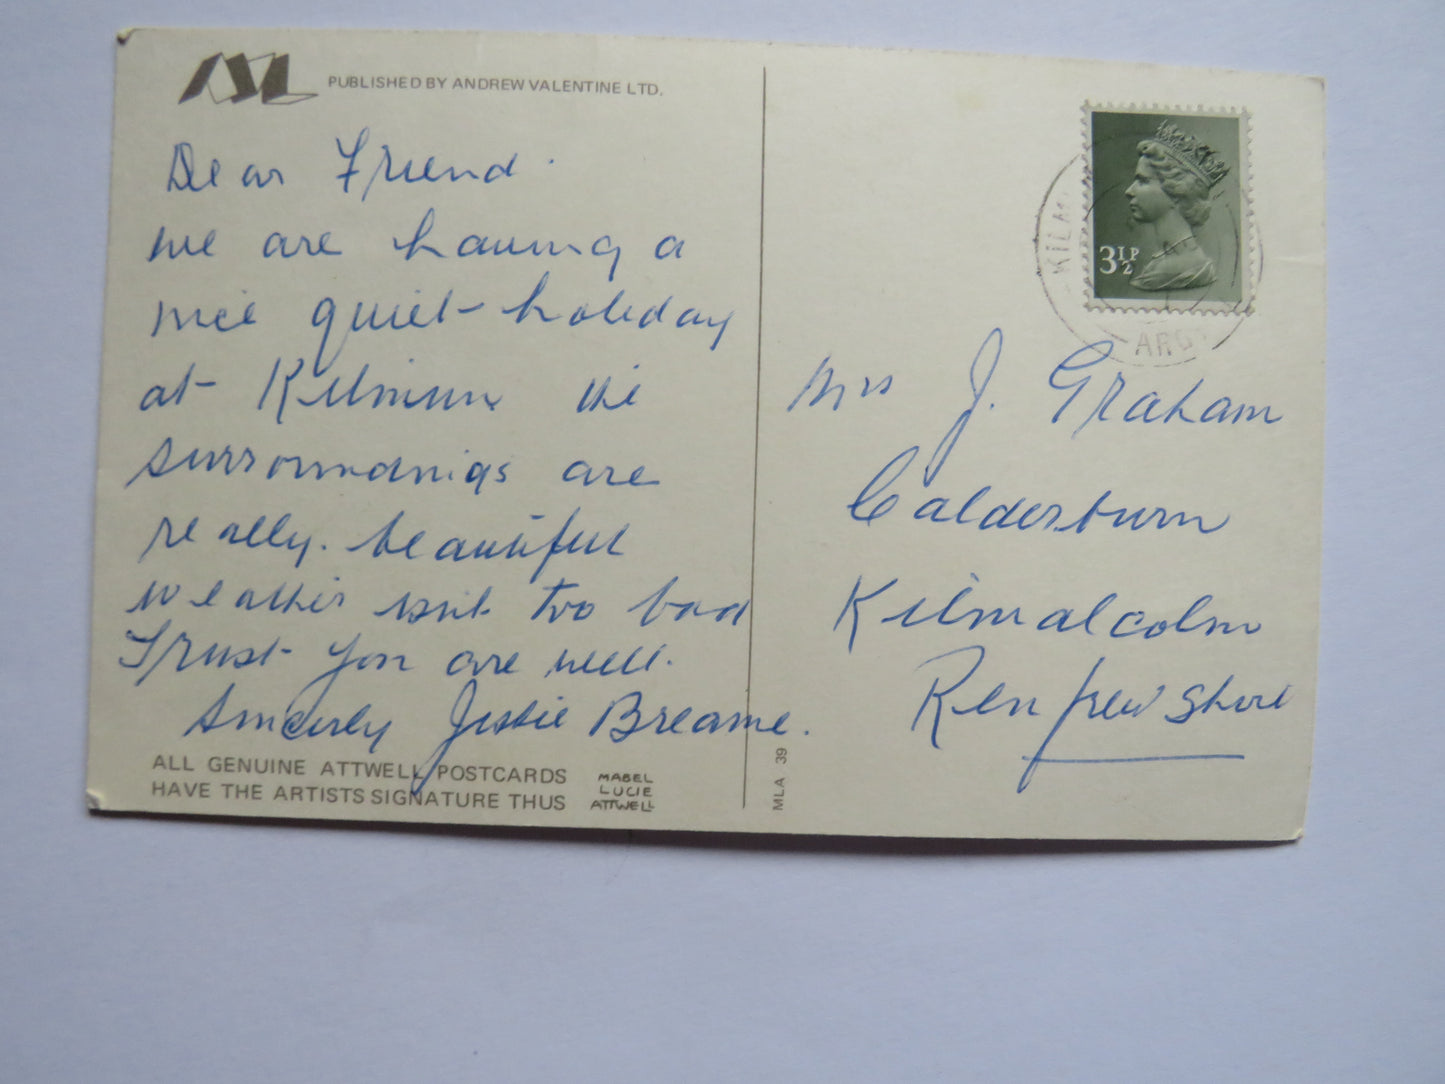 PUBLISHED BY ANDREW VALENTINE LTD.
Dear Friend.
we are having a
nice quiet holiday
at Kilmun the
surroundings are
really. beautiful
weather isnt too bad
Trust you are well.
Sincerely Jessie Breame.
ALL GENUINE ATTWELL POSTCARDS
HAVE THE ARTISTS SIGNATURE THUS
MABEL
LUCIE
ATTWELL
MLA 39
3½P
KILM
ARG
Mrs J. Graham
Calderburn
Kilmalcolm
Renfrewshire